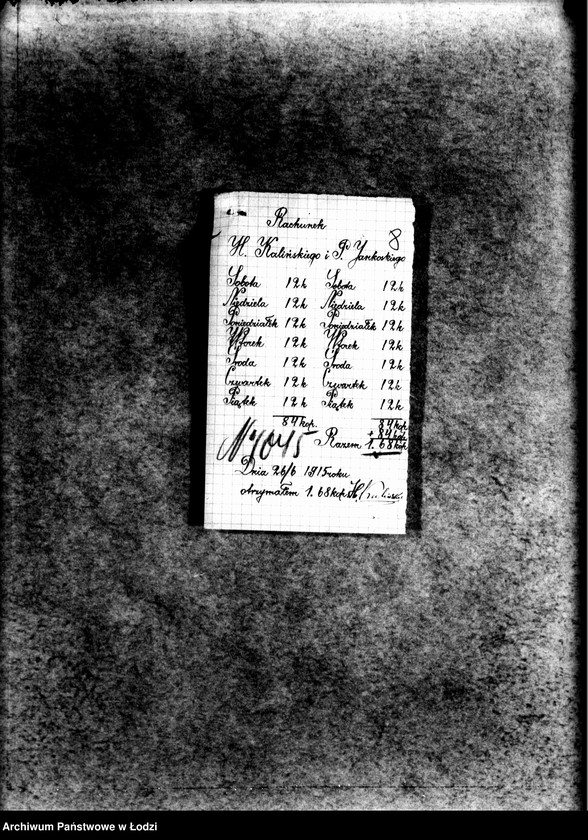 Rachunek
8
H. Kalińskiego i J. Jankoskiego
Sobota 12k Sobota 12k
Niedziela 12k Niedziela 12k
Poniedziałek 12k Poniedziałek 12k
Wtorek 12k Wtorek 12k
Środa 12k Środa 12k
Czwartek 12k Czwartek 12k
Piątek 12k Piątek 12k
84 kop. 84 kop.
+ 84 kop.
Razem 1.68 kop
Dnia 26/6 1915 roku
otrzymałem 1.68 kop. H.
Archiwum Państwowe w Łodzi